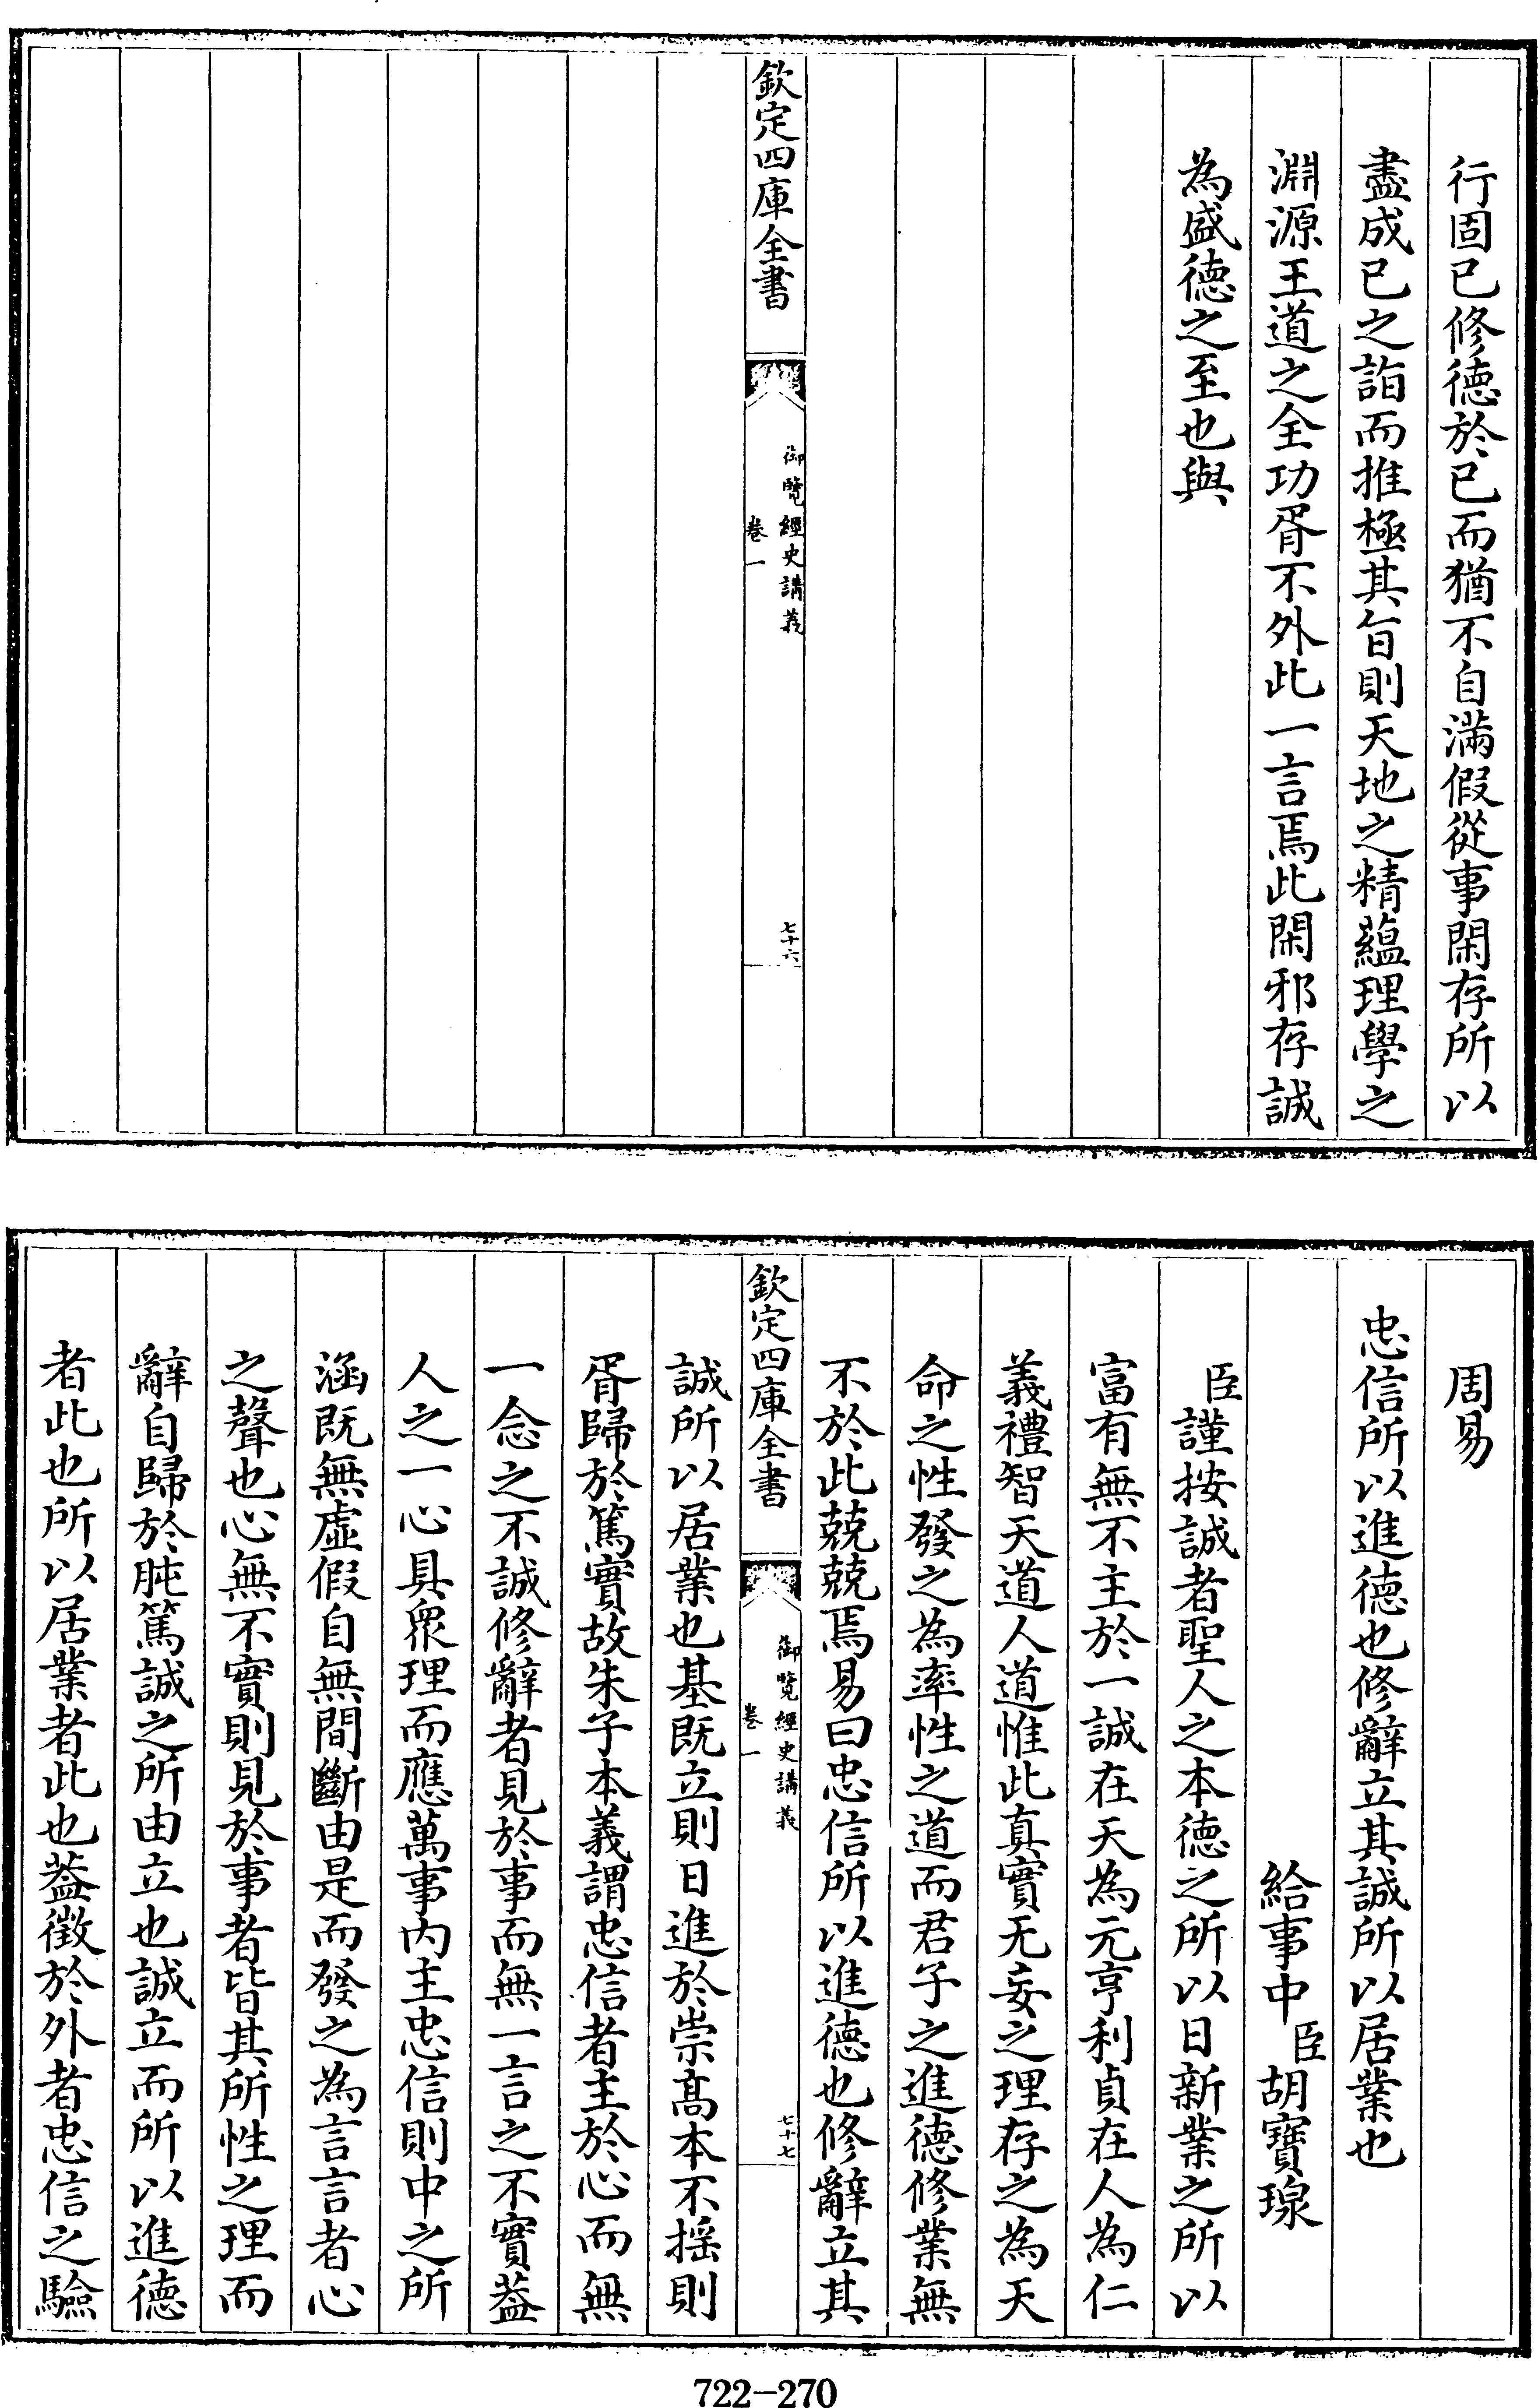 行固已修德於已而猶不自滿假從事閑存所以
盡成已之詣而推極其旨則天地之精蘊理學之
淵源王道之全功胥不外此一言焉此閑邪存誠
為盛德之至也與
欽定四庫全書
御覽經史講義
卷一
七十六
周易
忠信所以進德也修辭立其誠所以居業也
給事中臣胡寶瑔
臣謹按誠者聖人之本德之所以日新業之所以
富有無不主於一誠在天為元亨利貞在人為仁
義禮智天道人道惟此真實无妄之理存之為天
命之性發之為率性之道而君子之進德修業無
不於此兢兢焉易曰忠信所以進德也修辭立其
欽定四庫全書
御覽經史講義
卷一
七十七
誠所以居業也基既立則日進於崇高本不搖則
胥歸於篤實故朱子本義謂忠信者主於心而無
一念之不誠修辭者見於事而無一言之不實葢
人之一心具衆理而應萬事內主忠信則中之所
涵既無虛假自無間斷由是而發之為言言者心
之聲也心無不實則見於事者皆其所性之理而
辭自歸於肫篤誠之所由立也誠立而所以進德
者此也所以居業者此也葢徵於外者忠信之驗
722-270